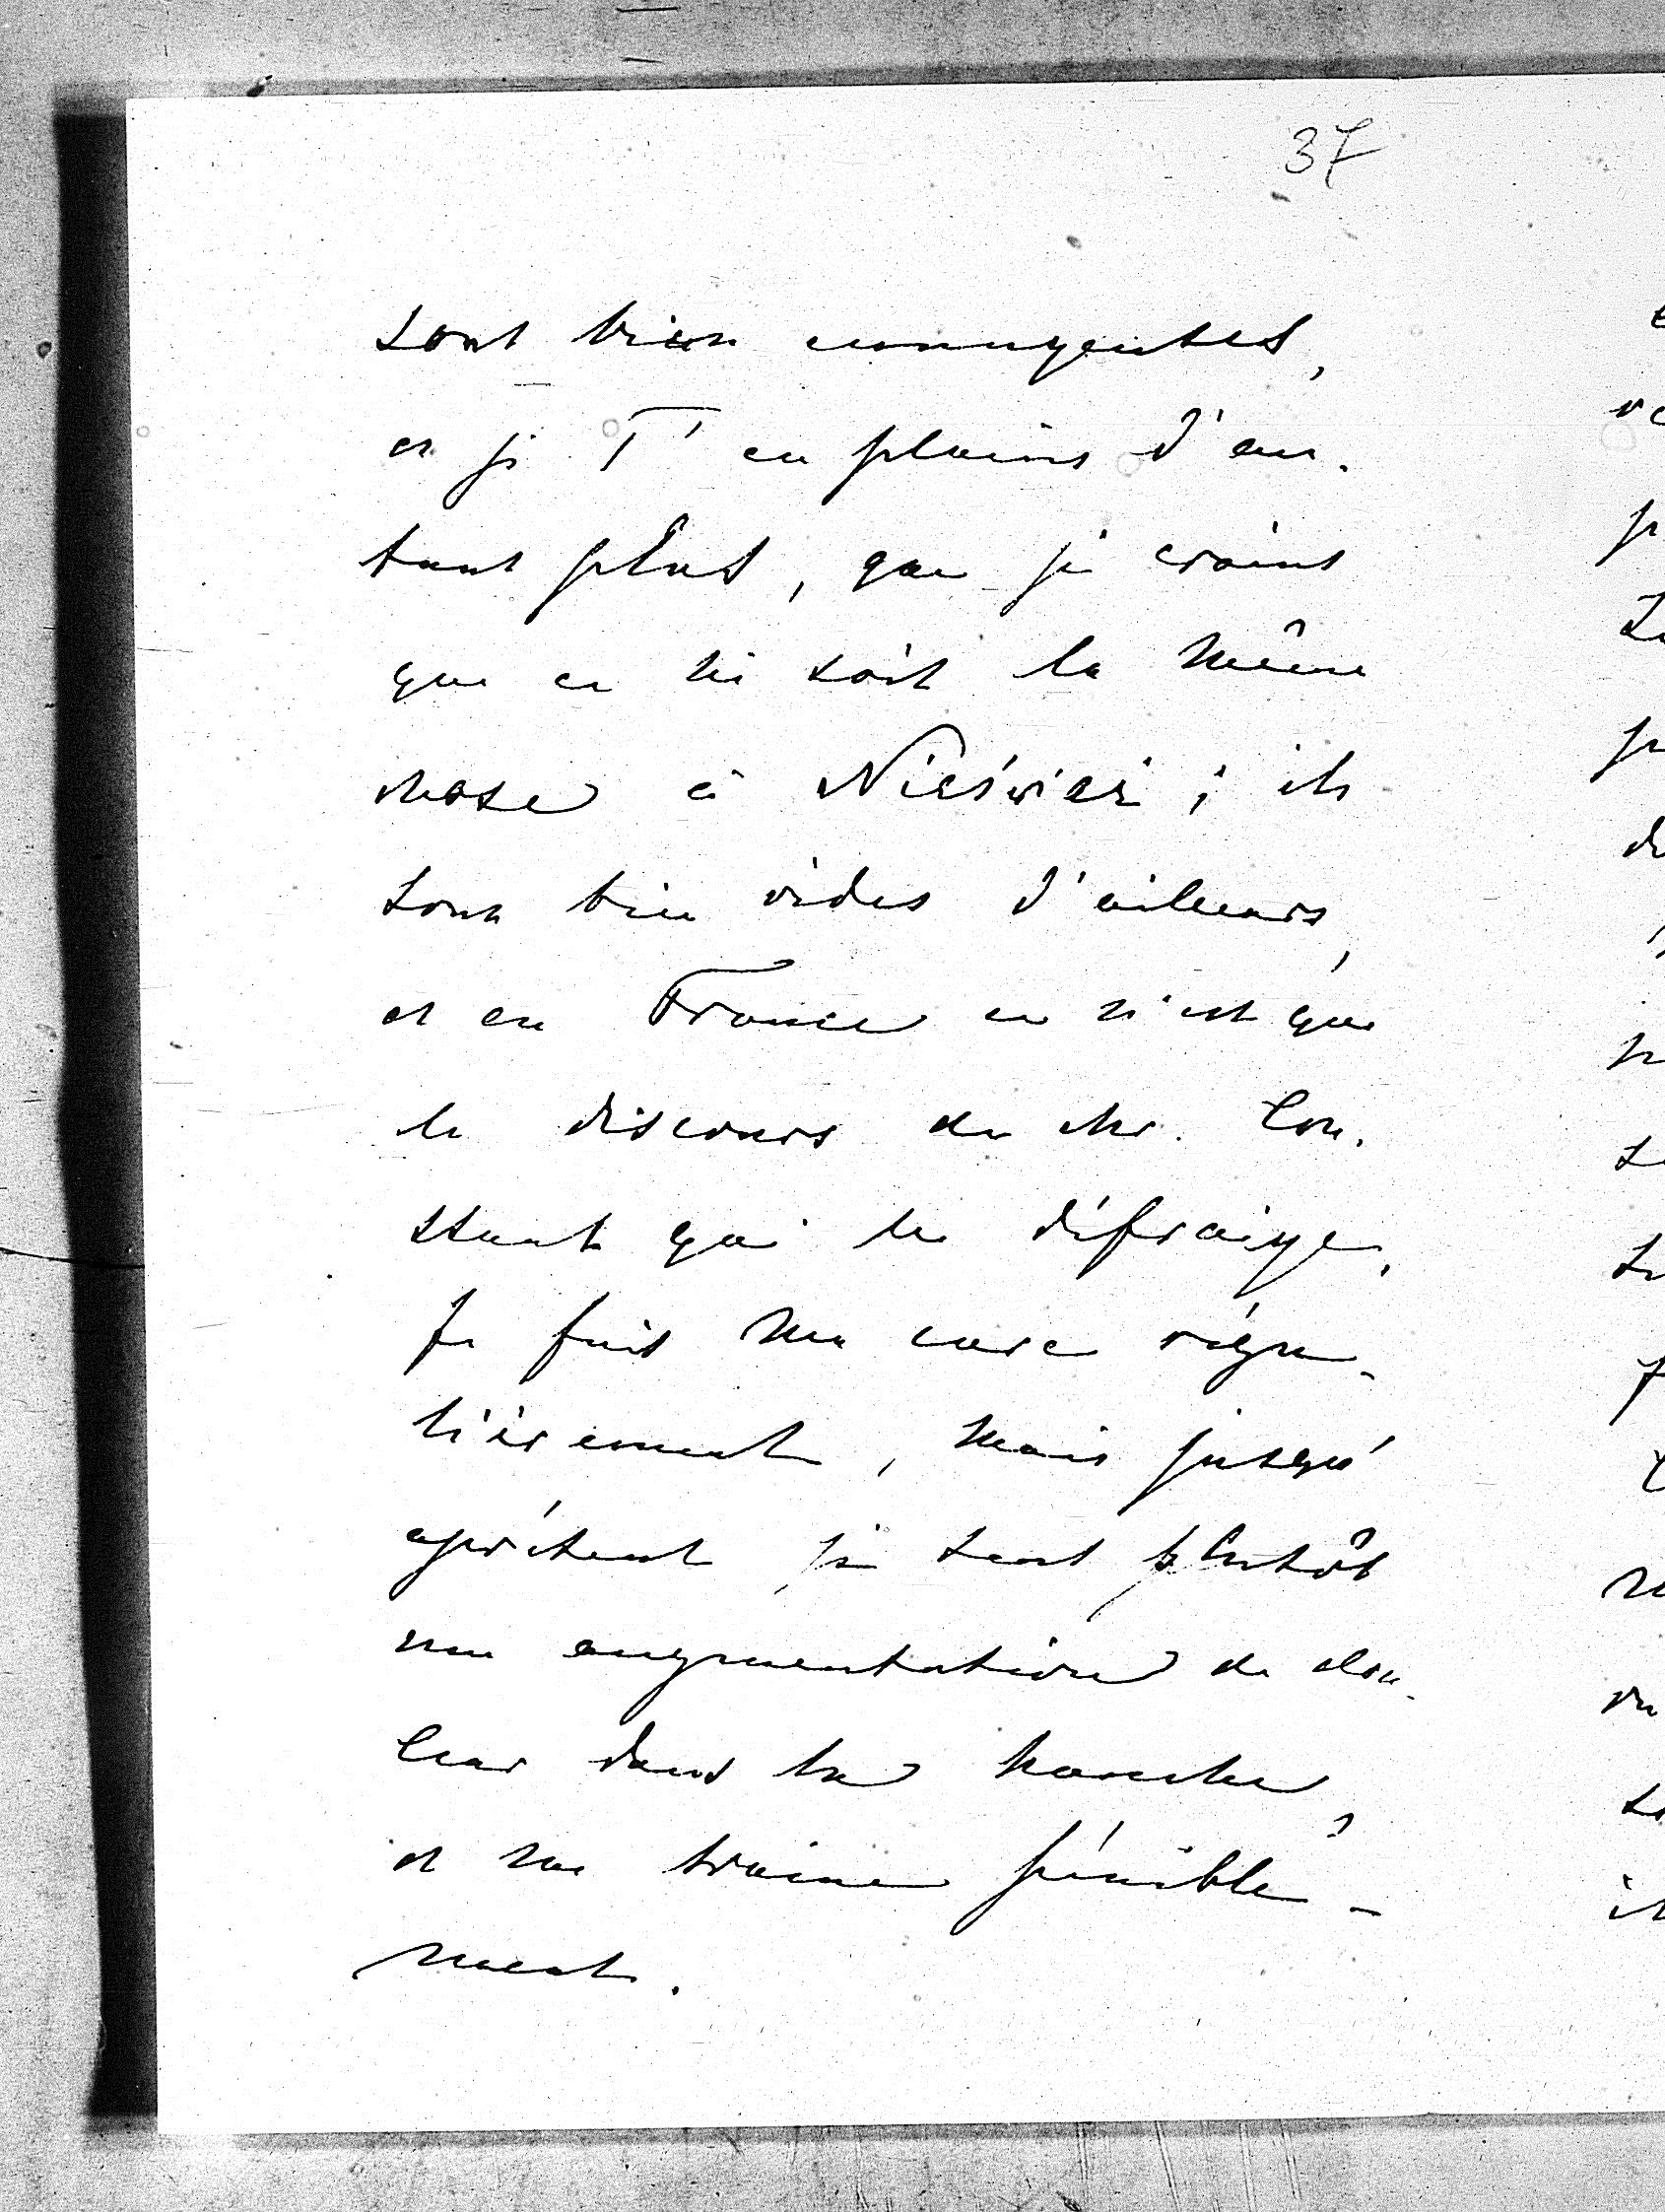 37
sont bien ennuyeuses,
et je T'en plains d'au-
tant plus, que je crains
que ce ne soit la même
chose à Nieśwież ; ils
sont bien vides d'ailleurs,
et en France ce n'est que
le discours de Mr. Con-
stant qui les défraye.
Je fais ma cure régu-
lièrement, mais jusqu'
àprésent je sens plutôt
une augmentation de dou-
leur dans la hanche,
et me traine pénible-
ment.